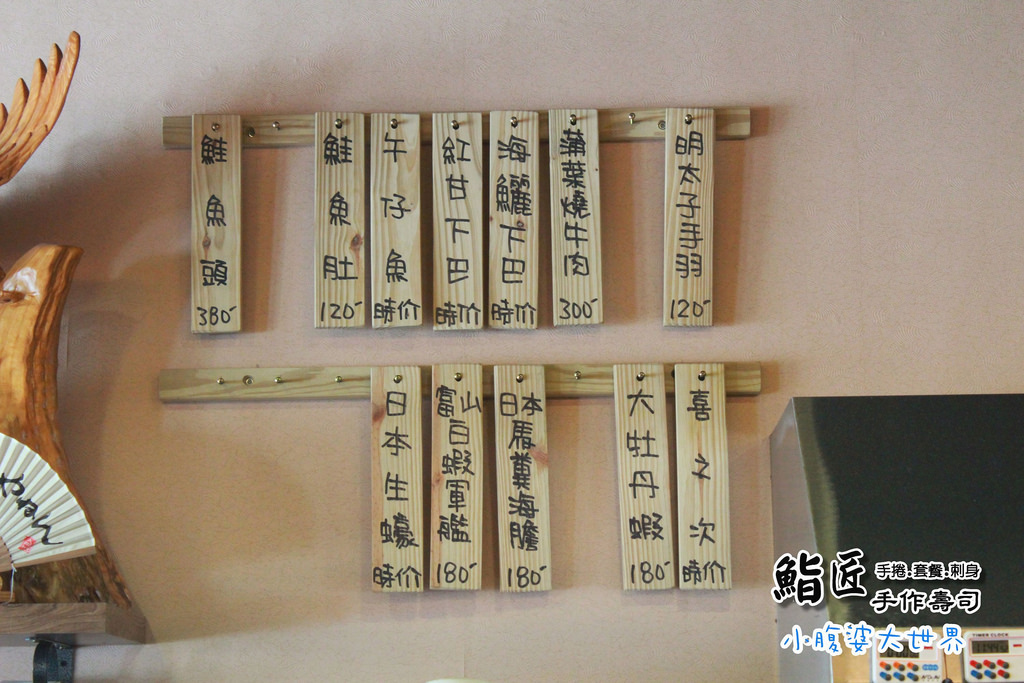 鮭魚頭
380
鮭魚肚
120
午仔魚
時价
紅甘下巴
時价
海鱺下巴
時价
蒲葉燒牛肉
300
明太子手羽
120
日本生蠔
時价
富山白蝦軍艦
180
日本馬糞海膽
180
大牡丹蝦
180
喜之次
時价
鮨匠
手捲.套餐.刺身
手作壽司
小腹婆大世界
TIMER CLOCK